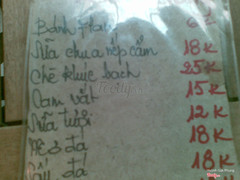 Bánh flan 6k
Sữa chua nếp cẩm 18k
Chè khúc bạch 25k
Cam vắt 15k
Sữa tươi 12k
đá 18k
đá 18k